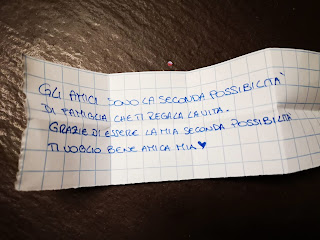 GLI AMICI SONO LA SECONDA POSSIBILITA'
DI FAMIGLIA CHE TI REGALA LA VITA.
GRAZIE DI ESSERE LA MIA SECONDA POSSIBILITA'
TI VOGLIO BENE AMICA MIA ♥